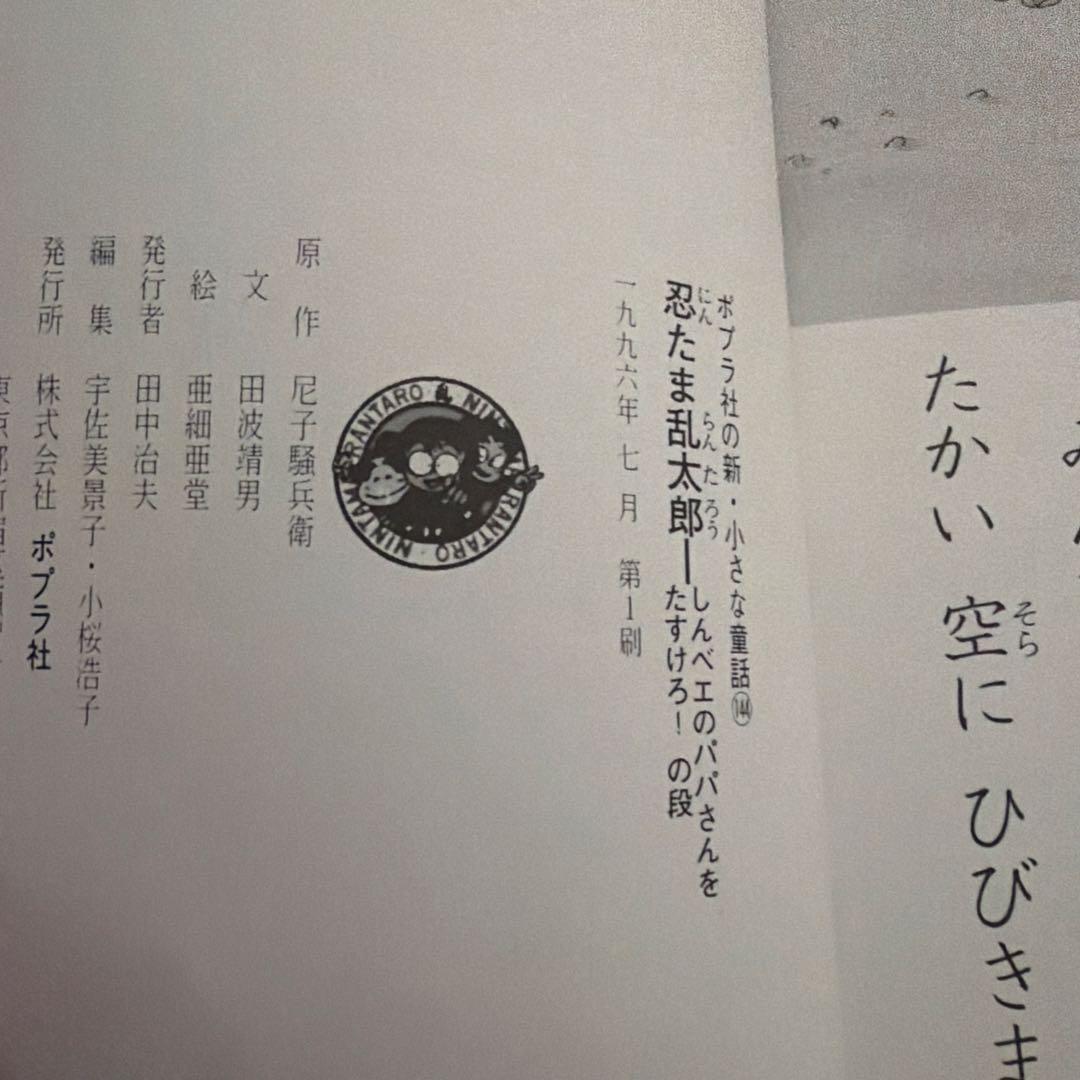 たかい 空に ひびきま
そら
ポプラ社の新・小さな童話144
忍たま乱太郎―しんベエのパパさんを
たすけろ！の段
にん らんたろう
一九九六年七月 第1刷
RANTARO & NIN
RANTARO・NINTAMA
原作 尼子騒兵衛
文 田波靖男
絵 亜細亜堂
発行者 田中治夫
編集 宇佐美景子・小桜浩子
発行所 株式会社 ポプラ社